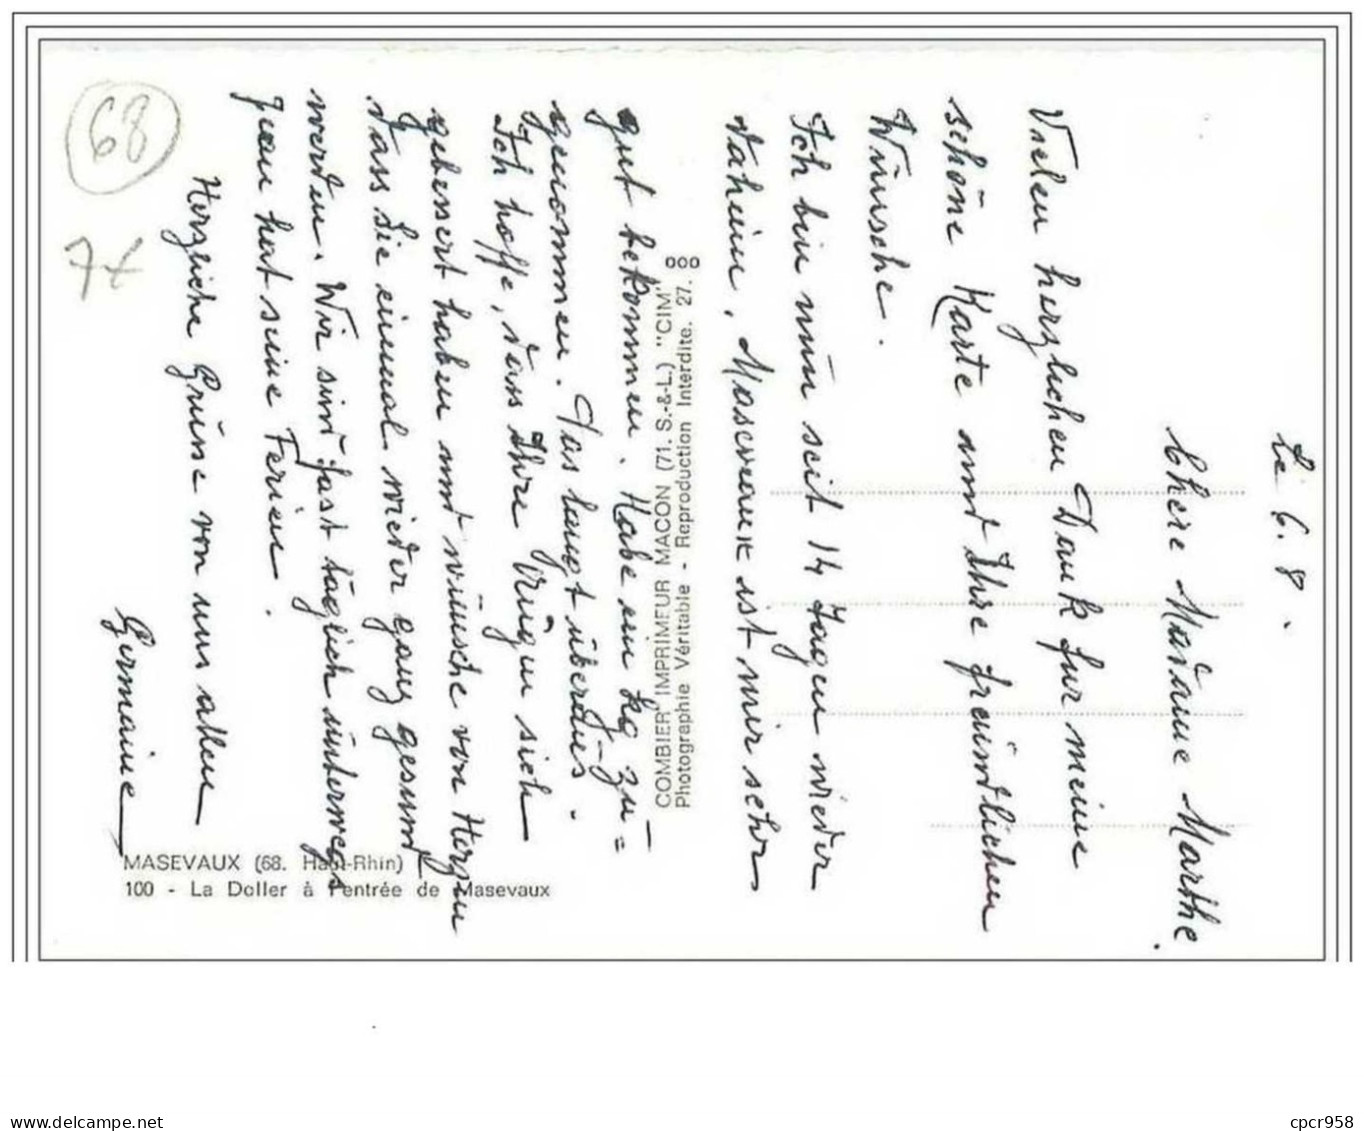 Le 6. 8.
Chere Madame Marthe.
Vielen herzlichen Dank für meine
schöne Karte und Ihre freundlichen
Wünsche.
Ich bin nun seit 14 Tagen wieder
daheim, Masevaux ist mir sehr
gut bekommen. Habe ein kg zu=
genommen. Das langt überdies.
Ich hoffe, dass Ihre Augen sich
gebessert haben und wünsche von Herzen
dass Sie einmal wieder ganz gesund
werden. Wir sind fast täglich unterwegs
Jean hat seine Ferien.
Herzliche Grüsse von uns allen
Germaine
68
7f
COMBIER IMPRIMEUR MACON (71. S.-&-L.) "CIM"
Photographie Véritable - Reproduction Interdite. 27.
MASEVAUX (68. Haut-Rhin)
100 - La Doller à l'entrée de Masevaux
delcampe.net
cpcr958